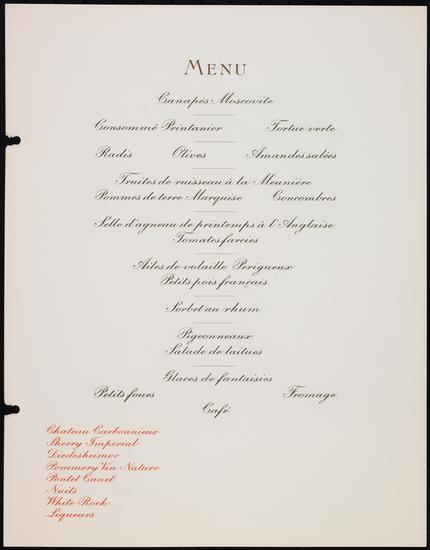 MENU
Canapés Moscovite
Consommé Printanier Tortue verte
Radis Olives Amandes salées
Truites de ruisseau à la Meunière
Pommes de terre Marquise Concombres
Selle d'agneau de printemps à l'Anglaise
Tomates farcies
Ailes de volaille Perigueux
Petits pois français
Sorbet au rhum
Pigeonneaux
Salade de laitues
Glaces de fantaisies
Petits fours Fromage
Café
Chateau Carbonnieux
Sherry Imperial
Diedesheimer
Pommery Vin Nature
Pontet Canet
Nuits
White Rock
Liqueurs